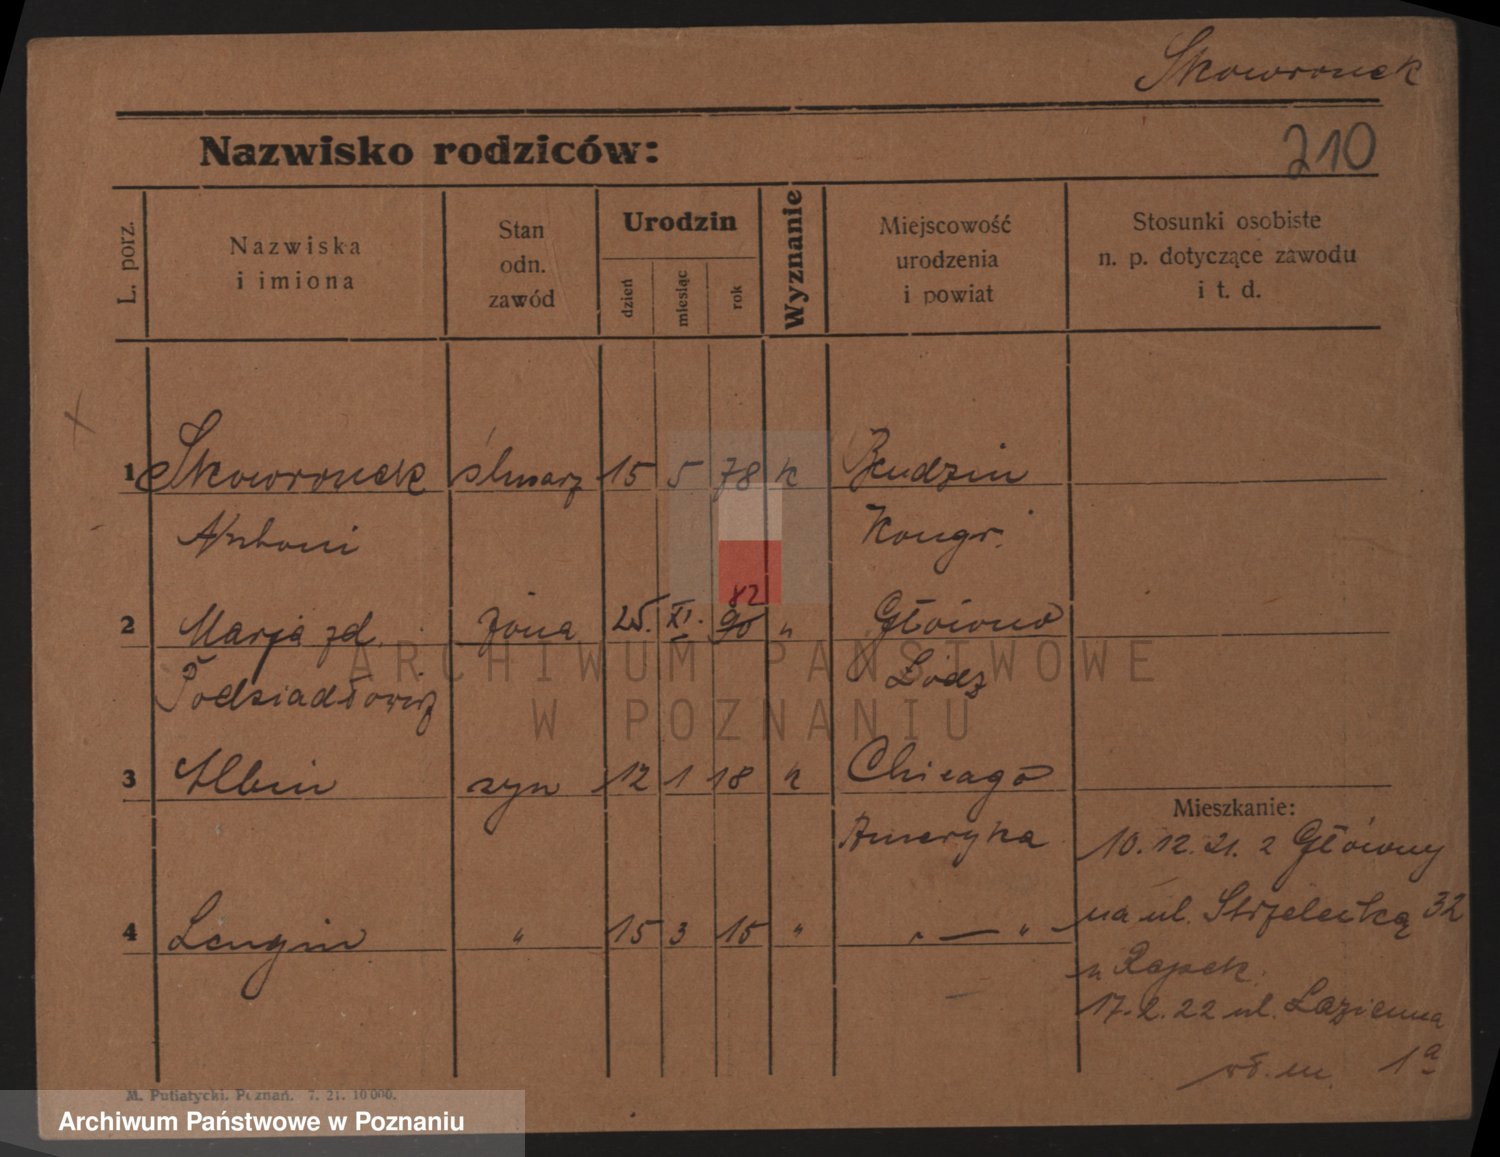 Skowronek
Nazwisko rodziców:
210
L. porz.
Nazwiska
i imiona
Stan
odn.
zawód
Urodzin
dzień
miesiąc
rok
Wyznanie
Miejscowość
urodzenia
i powiat
Stosunki osobiste
n. p. dotyczące zawodu
i t. d.
1 Skowronek ślusarz 15 5 78 k Budzin
Antoni Kongr.
82
2 Marja zd. żona 25. XI. 90 " Główno
Podziadłowicz Łódz
3 Albin syn 12 1 18 k Chicago
Mieszkanie:
Ameryka 10.12.21. z Główny
na ul. Strzelecką 32
4 " 15 3 15 " " — "
n Rajsek.
17.2.22 ul. Łazienna
wł. m. 1a
M. Putiatycki, Poznań. 7. 21. 10000.
ARCHIWUM PAŃSTWOWE
W POZNANIU
Archiwum Państwowe w Poznaniu